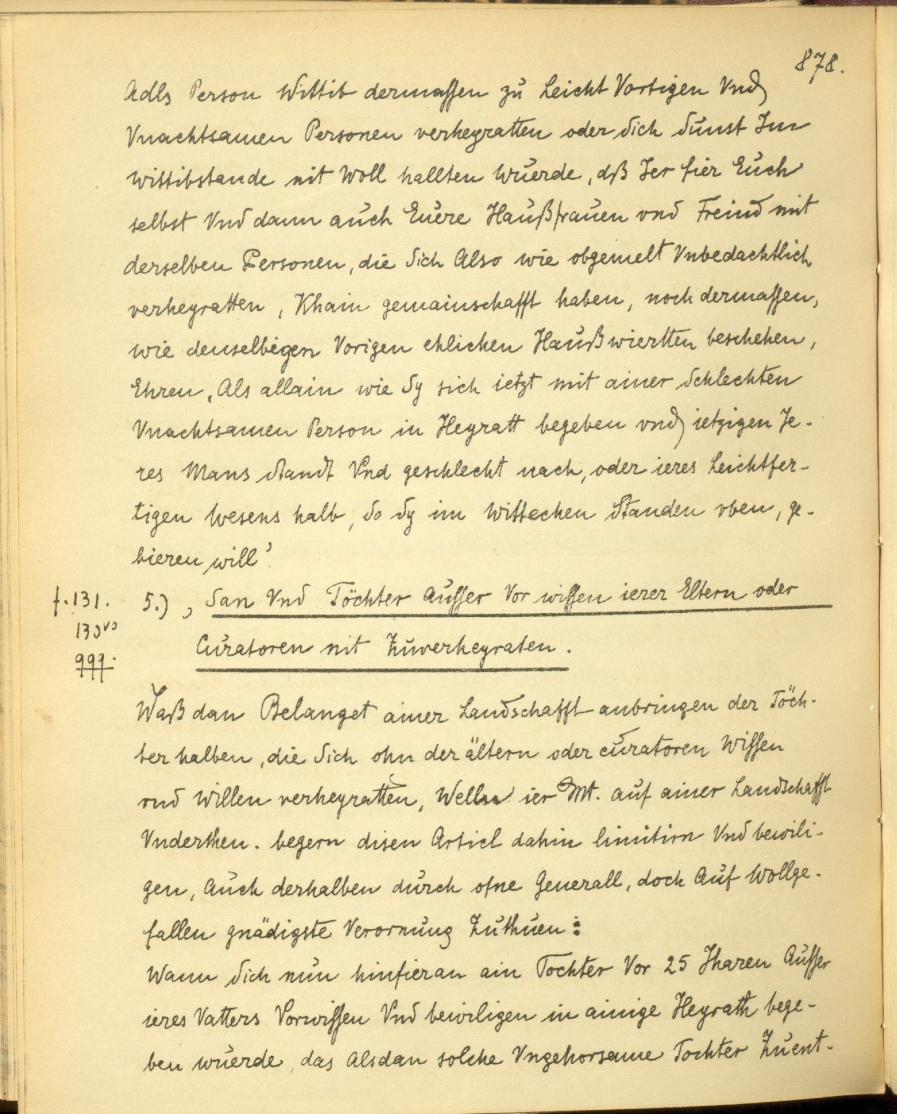 878.
Adls Person Wittib dermassen zu Leicht Vertigen Vnd
Vnachtsamen Personen verheyratten oder Sich Sunst Im
Wittibstande nit Woll hallten wuerde, dß Ier fier Euch
selbst Vnd dann auch Euere Haußfrauen vnd Freind mit
derselben Personen, die Sich Also wie obgemelt Vnbedachtlich
verheyratten, Khain gemainschafft haben, noch dermassen,
wie denselbigen Vorigen ehlichen Haußwiertten beschehen,
Ehren, Als allain wie Sy sich ietzt mit ainer Schlechten
Vnachtsamen Person in Heyratt begeben vnd ietzigen Ie-
res Mans standt Vnd geschlecht nach, oder ieres Leichtfer-
tigen Wesens halb, So Sy im Wittechen Standen vben, ge-
bieren will'
f. 131.
130vo
999.
5.) , San Vnd Töchter Ausser Vor wissen ierer Eltern oder
Curatoren nit Zuverheyraten.
Waß dan Belanget ainer Landschafft anbringen der Töch-
ter halben, die Sich ohn der ältern oder curatoren Wissen
vnd Willen verheyratten, Wellen ier Mt. auf ainer Landschafft
Vnderthen. begern disen Articl dahin limitirn Vnd bewili-
gen, Auch derhalben durch ofne Generall, doch Auf Wollge-
fallen gnädigste Verornung Zuthuen:
Wann Sich nun hinfieran ain Tochter Vor 25 Jharen Ausser
ieres Vatters Vorwissen Vnd bewiligen in ainige Heyrath bege-
ben wuerde, das Alsdan solche Vngehorsame Tochter Zuent-